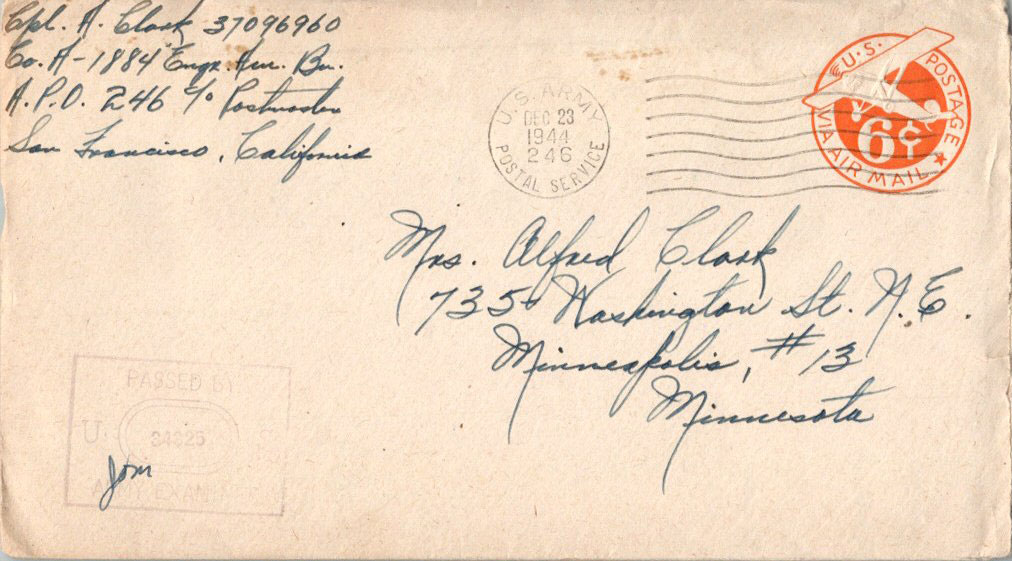 Cpl. A. Clark 37096960
Co. A-1884 Engr. Avn. Bn.
A.P.O. 246 c/o Postmaster
San Francisco, California
U.S. ARMY
DEC 23
1944
246
POSTAL SERVICE
U.S. POSTAGE
6¢
VIA AIR MAIL
Mrs. Alfred Clark
735 Washington St. N.E.
Minneapolis, #13
Minnesota
PASSED BY
U.
ARMY EXAMINER